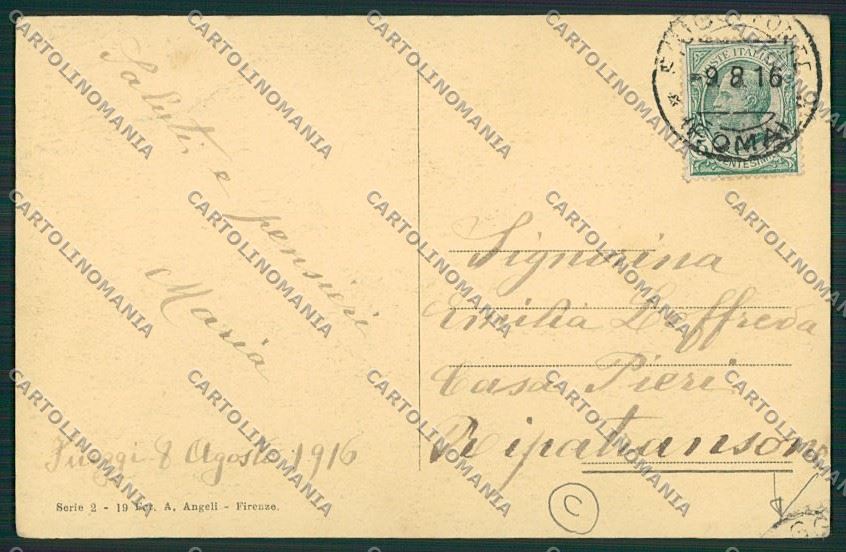 Saluti e pensieri
Maria
Fiuggi 8 Agosto 1916
Serie 2 - 19 Fot. A. Angeli - Firenze.
POSTE ITALIANE
CENTESIMI
-9.8.16
(ROMA)
Signorina
Emilia Loffreda
Casa Pieri
Ripatransone
C
CARTOLINOMANIA